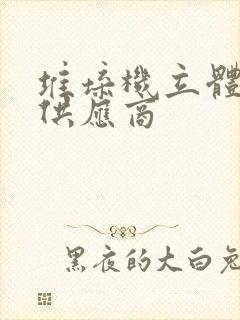 堆垛機立體
供應商
黑夜的大白兔